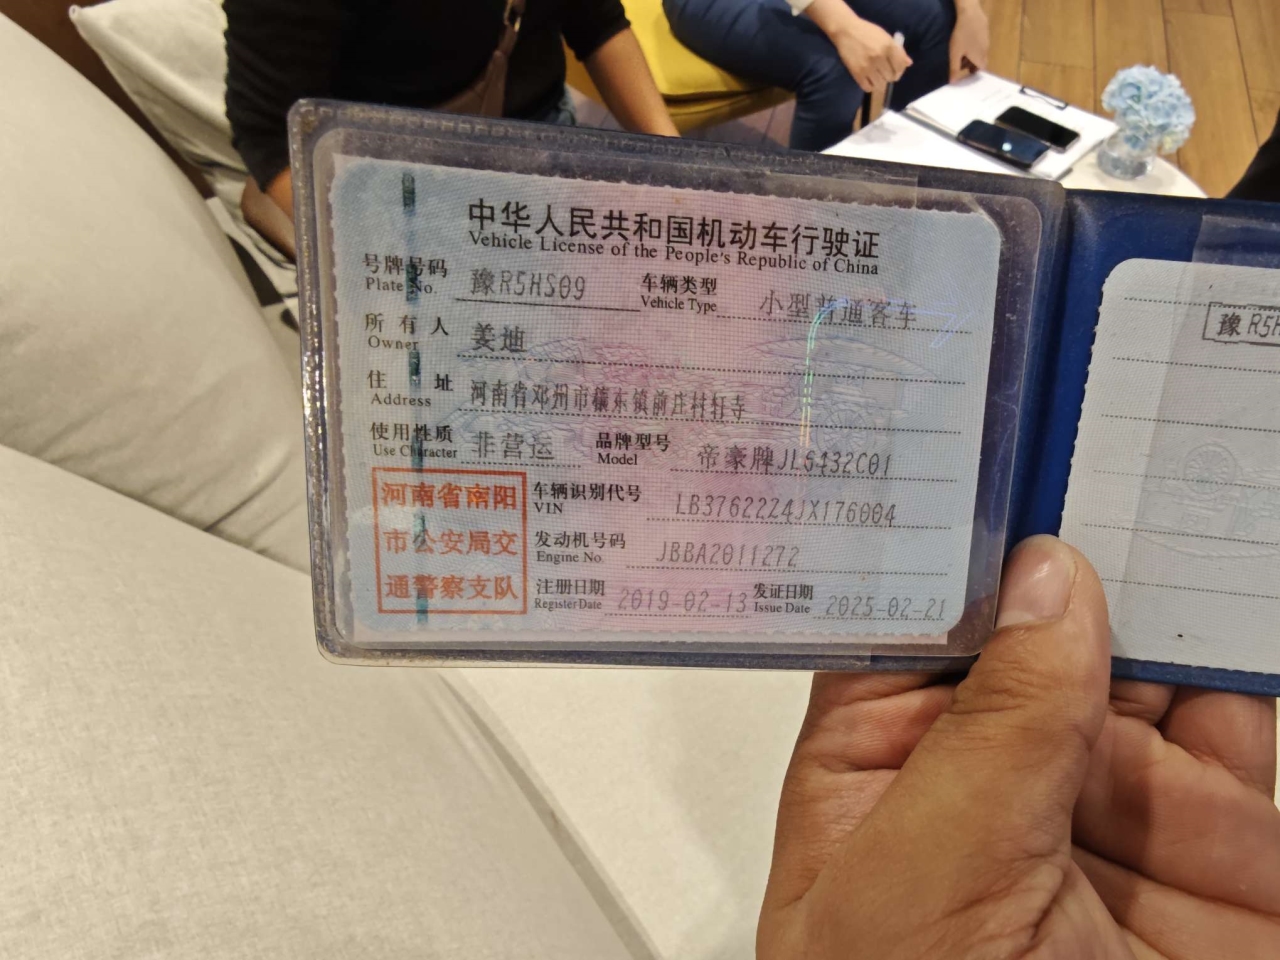 中华人民共和国机动车行驶证
Vehicle License of the People's Republic of China
号牌号码 豫R5HS09 车辆类型 小型普通客车
Plate No. Vehicle Type
所有人 姜迪
Owner
住址 河南省邓州市穰东镇前庄村轩寺
Address
使用性质 非营运 品牌型号 帝豪牌JL6432C01
Use Character Model
河南省南阳
市公安局交
通警察支队
车辆识别代号 LB37622Z4JX176004
VIN
发动机号码 JBBA2011272
Engine No.
注册日期 2019-02-13 发证日期 2025-02-21
Register Date Issue Date
豫R5H